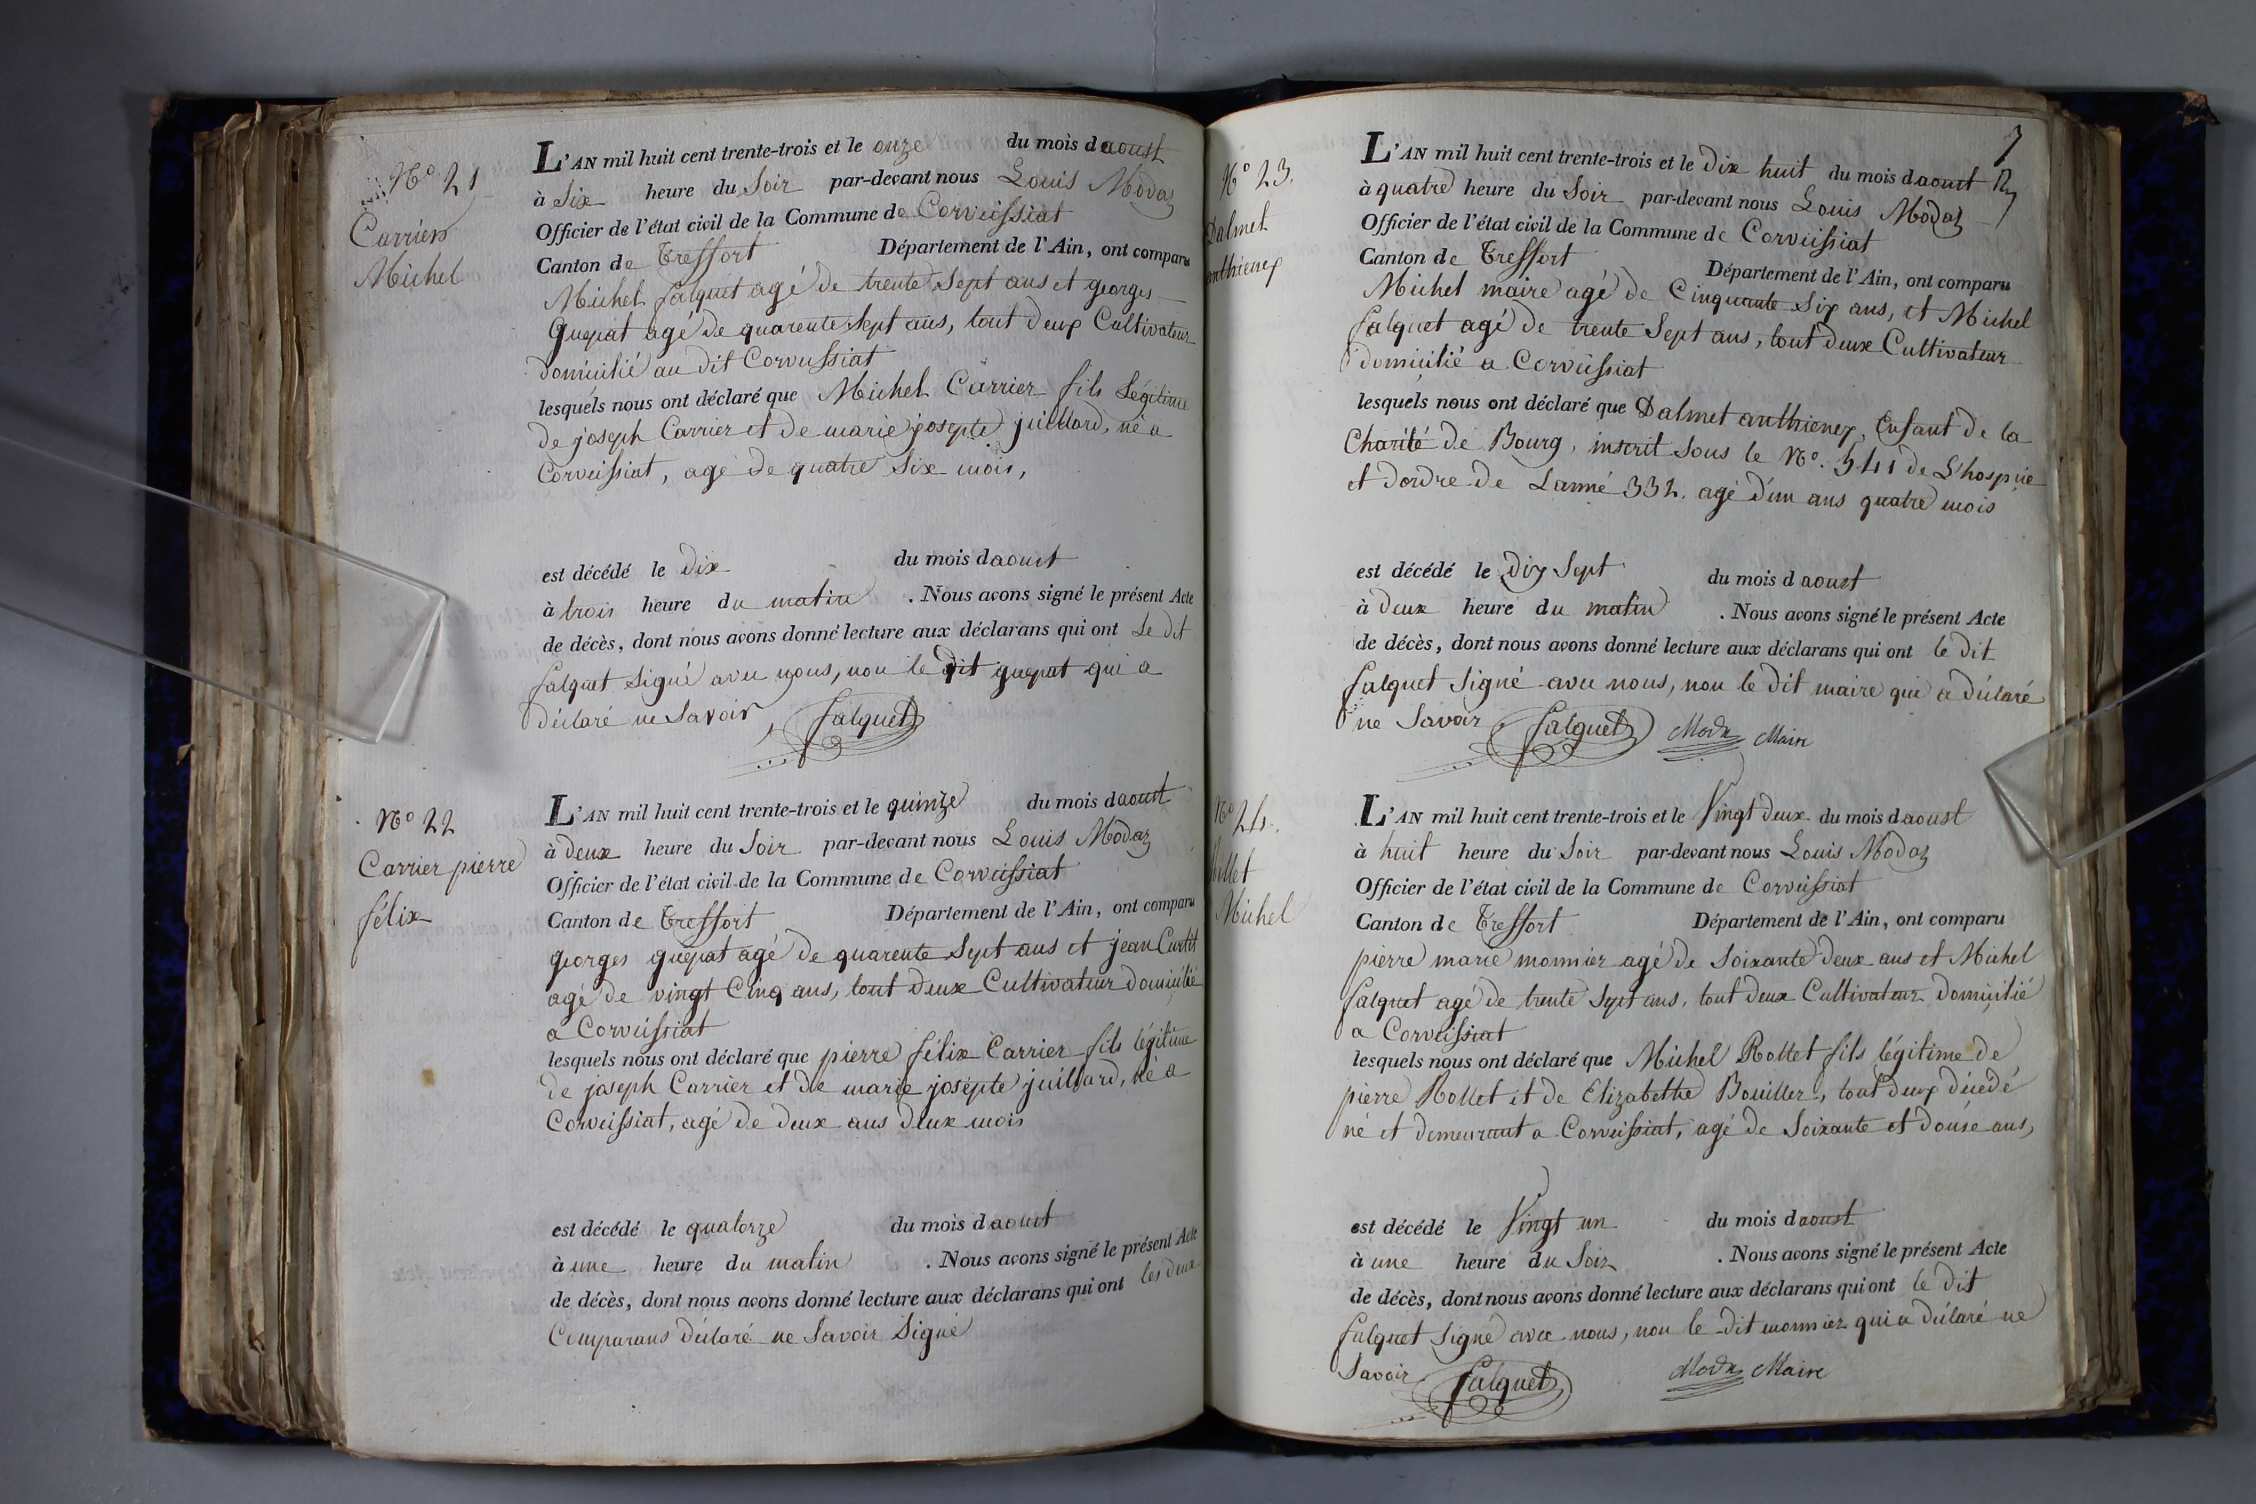 N.º 21
Carrier
Michel
L'AN mil huit cent trente-trois et le onze du mois d'aoust
à Six heure du Soir par-devant nous Louis Modas
Officier de l'état civil de la Commune de Corveissiat
Canton de Treffort Département de l'Ain, ont comparu
Michel falquet agé de trente Sept ans et georges
Guepat agé de quarente Sept ans, tout deux Cultivateur
domicilié au dit Corveissiat
lesquels nous ont déclaré que Michel Carrier fils Légitime
de joseph Carrier et de marie josepte juillard, né a
Corveissiat, agé de quatre six mois,
est décédé le Dix du mois d'aoust
à trois heure du matin . Nous avons signé le présent Acte
de décès, dont nous avons donné lecture aux déclarans qui ont Le dit
falquet Signé avec nous, non le dit guepat qui a
déclaré ne Savoir, falquet
Nº 22
Carrier pierre
félix
L'AN mil huit cent trente-trois et le quinze du mois d'aoust
à Deux heure du Soir par-devant nous Louis Modas
Officier de l'état civil de la Commune de Corveissiat
Canton de Treffort Département de l'Ain, ont comparu
georges guepat agé de quarente Sept ans et jean Curtit
agé de vingt Cinq ans, tout deux Cultivateur domicilié
a Corveissiat
lesquels nous ont déclaré que pierre félix Carrier fils légitime
de joseph Carrier et de marie josépte juillard, né a
Corveissiat, agé de deux ans deux mois
est décédé le quatorze du mois d'aoust
à une heure du matin . Nous avons signé le présent Acte
de décès, dont nous avons donné lecture aux déclarans qui ont les deux
Comparans déclaré ne Savoir Signé
7
Nº 23.
Dalmet
anthienex
L'AN mil huit cent trente-trois et le Dix huit du mois d'aoust
à quatre heure du Soir par-devant nous Louis Modas
Officier de l'état civil de la Commune de Corveissiat
Canton de Treffort Département de l'Ain, ont comparu
Michel maire agé de Cinquante Six ans, et Michel
falquet agé de trente Sept ans, tout deux Cultivateur
domicilié a Corveissiat
lesquels nous ont déclaré que Dalmet anthienex, Enfant de la
Charité de Bourg, inscrit Sous le Nº. 541 de L'hospice
et dordre de Lanné 332. agé d'un ans quatre mois
est décédé le Dix Sept du mois d'aoust
à Deux heure du matin . Nous avons signé le présent Acte
de décès, dont nous avons donné lecture aux déclarans qui ont le dit
falquet Signé avec nous, non le dit maire qui a déclaré
ne Savoir falquet Modas Maire
Nº 24.
Rollet
Michel
L'AN mil huit cent trente-trois et le Vingt deux du mois d'aoust
à huit heure du Soir par-devant nous Louis Modas
Officier de l'état civil de la Commune de Corveissiat
Canton de Treffort Département de l'Ain, ont comparu
pierre marie monnier agé de Soixante deux ans et Michel
falquet agé de trente Sept ans, tout deux Cultivateur domicilié
a Corveissiat
lesquels nous ont déclaré que Michel Rollet fils légitime de
pierre Rollet et de Elizabethe Bouiller, tout deux décédé
né et demeurant a Corveissiat, agé de Soixante et douse ans,
est décédé le Vingt un du mois d'aoust
à une heure du Soir . Nous avons signé le présent Acte
de décès, dont nous avons donné lecture aux déclarans qui ont le dit
falquet Signé avec nous, non le dit monnier qui a déclaré ne
Savoir falquet Modas Maire